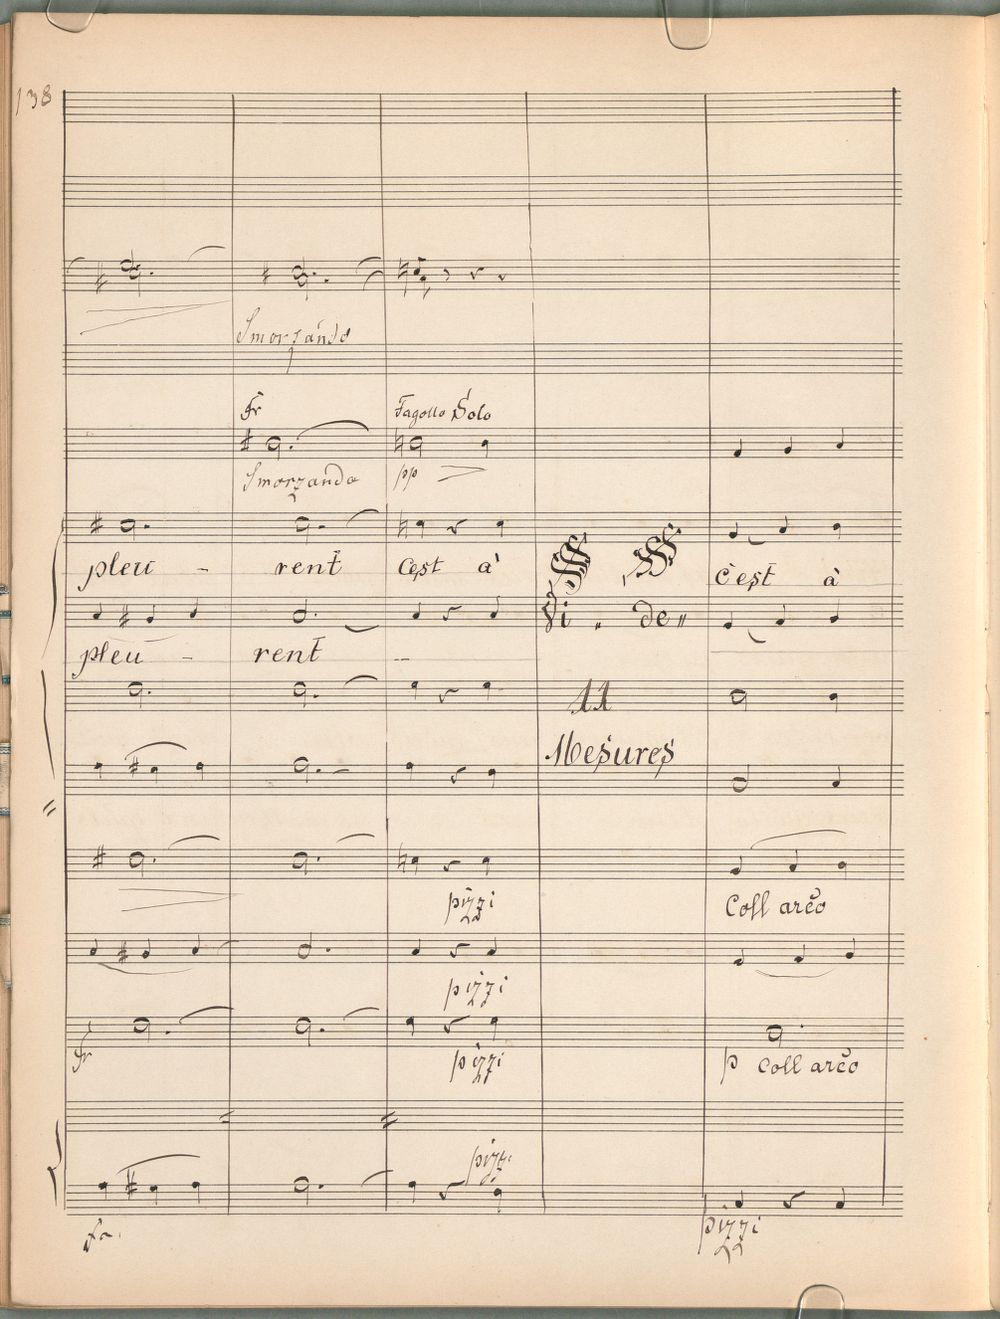 138
Smorzando
Fr Fagotto Solo
Smorzando pp
pleu - rent c'est à c'est à
Vi " de "
pleu - rent --
11
Mesures
pizzi Coll arco
pizzi
Fr pizzi p Coll arco
pizzi
pizzi